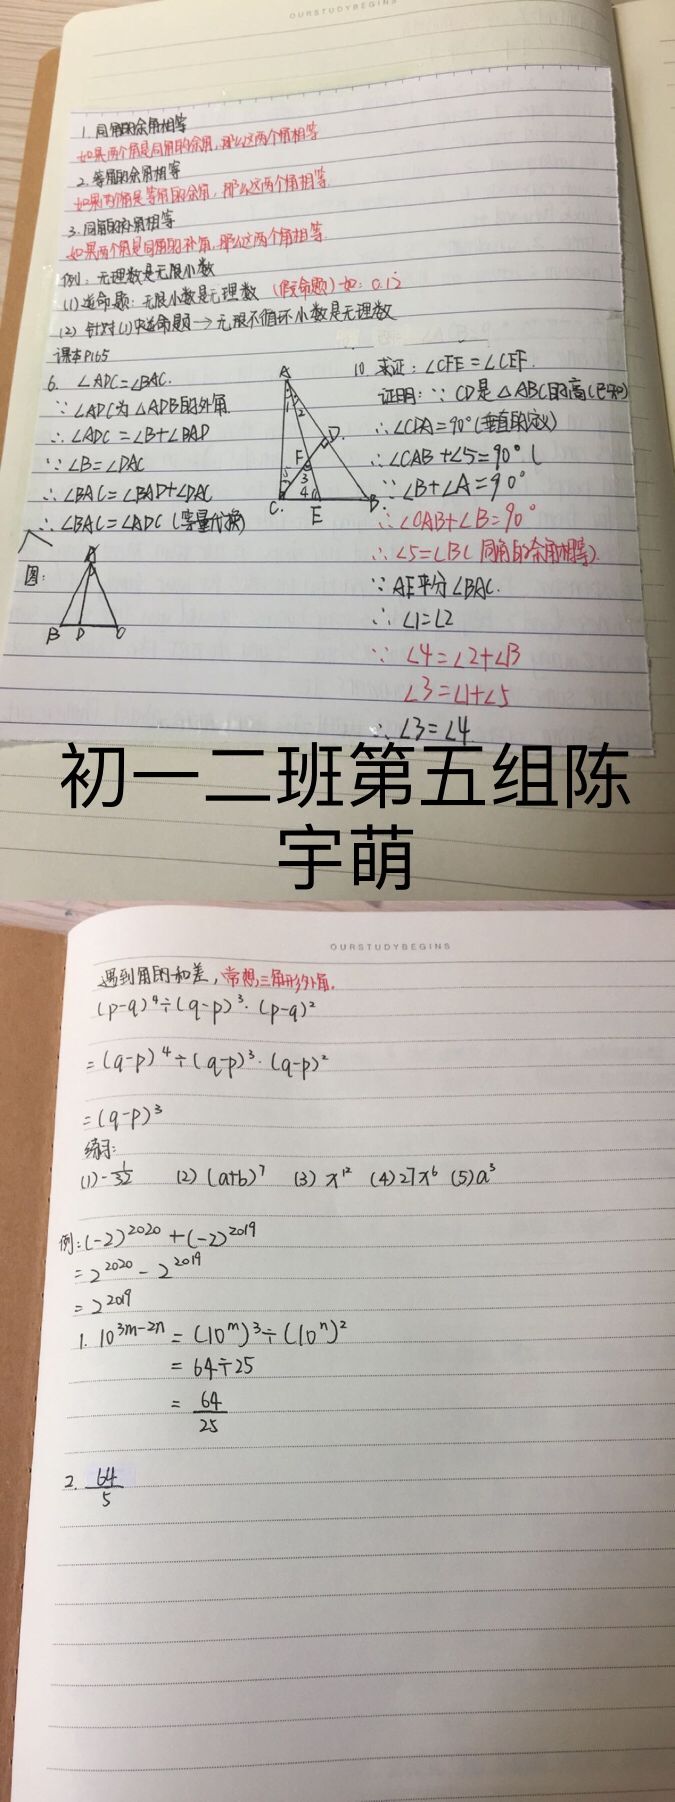 OURSTUDYBEGINS
1. 同角的余角相等
如果两个角是同角的余角,那么这两个角相等
2. 等角的余角相等
如果两个角是等角的余角,那么这两个角相等.
3. 同角的补角相等
如果两个角是同角的补角,那么这两个角相等.
例:无理数是无限小数
(1) 逆命题:无限小数是无理数 (假命题) 如:0.12
(2) 针对(1)中逆命题→无限不循环小数是无理数
课本P165
6. ∠ADC=∠BAC.
∵∠ADC为△ADB的外角.
∴∠ADC=∠B+∠BAD
∵∠B=∠DAC
∴∠BAC=∠BAD+∠DAC
∴∠BAC=∠ADC (等量代换)
图:
A
B D C
A
1 2
D
F
5 3
4
C. E B
10. 求证:∠CFE=∠CEF.
证明:∵CD是△ABC的高(已知)
∴∠CDA=90°(垂直的定义)
∴∠CAB+∠5=90°(
∵∠B+∠A=90°
∴∠CAB+∠B=90°
∴∠5=∠B(同角的余角相等).
∵AE平分∠BAC.
∴∠1=∠2
∵∠4=∠2+∠B
∠3=∠1+∠5
∴∠3=∠4
初一二班第五组陈
宇萌
OURSTUDYBEGINS
遇到角的和差,常想三角形外角.
(p-q)⁴÷(q-p)³·(p-q)²
=(q-p)⁴÷(q-p)³·(q-p)²
=(q-p)³
练习:
(1) -1/32 (2) (a+b)⁷ (3) x¹² (4) 27x⁶ (5) a³
例:(-2)²⁰²⁰+(-2)²⁰¹⁹
=2²⁰²⁰-2²⁰¹⁹
=2²⁰¹⁹
1. 10³ᵐ⁻²ⁿ=(10ᵐ)³÷(10ⁿ)²
=64÷25
=64/25
2. 64/5